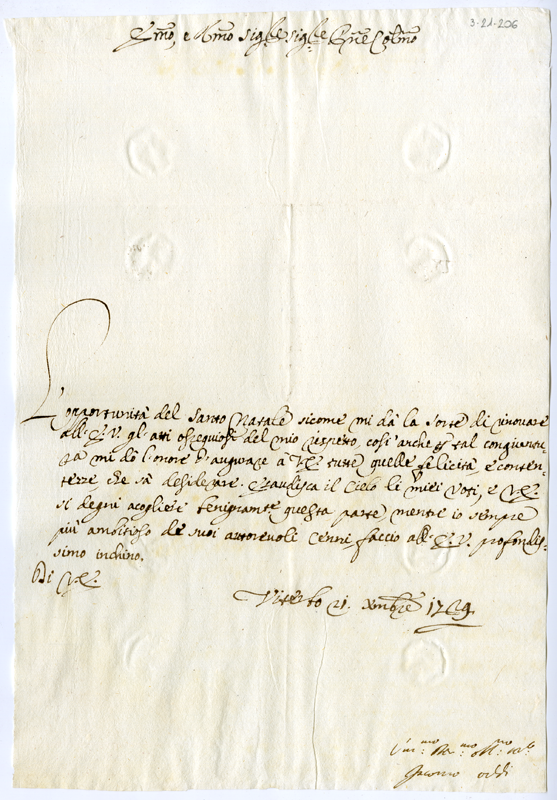 3-21-206
Emo, e Rmo Sigre Sigre Prne Colmo
L'opportunità del Santo Natale sicome mi dà la sorte di rinovare
all' E. V. gl' atti ossequiosi del mio rispetto, così anche in tal congiuntu=
ra mi dò l'onore d'augurare a V.E. tutte quelle felicità e conten=
tezze che sà desiderare. Esaudisca il Cielo li miei voti, e V.E.
si degni accogliere benignamte questa parte, mentre io sempre
più ambitioso de suoi autorevoli cenni faccio all' E. V. profondis=
simo inchino.
Di V.E.
Viterbo 21. Xmbre 1729.
Giacomo Oddi